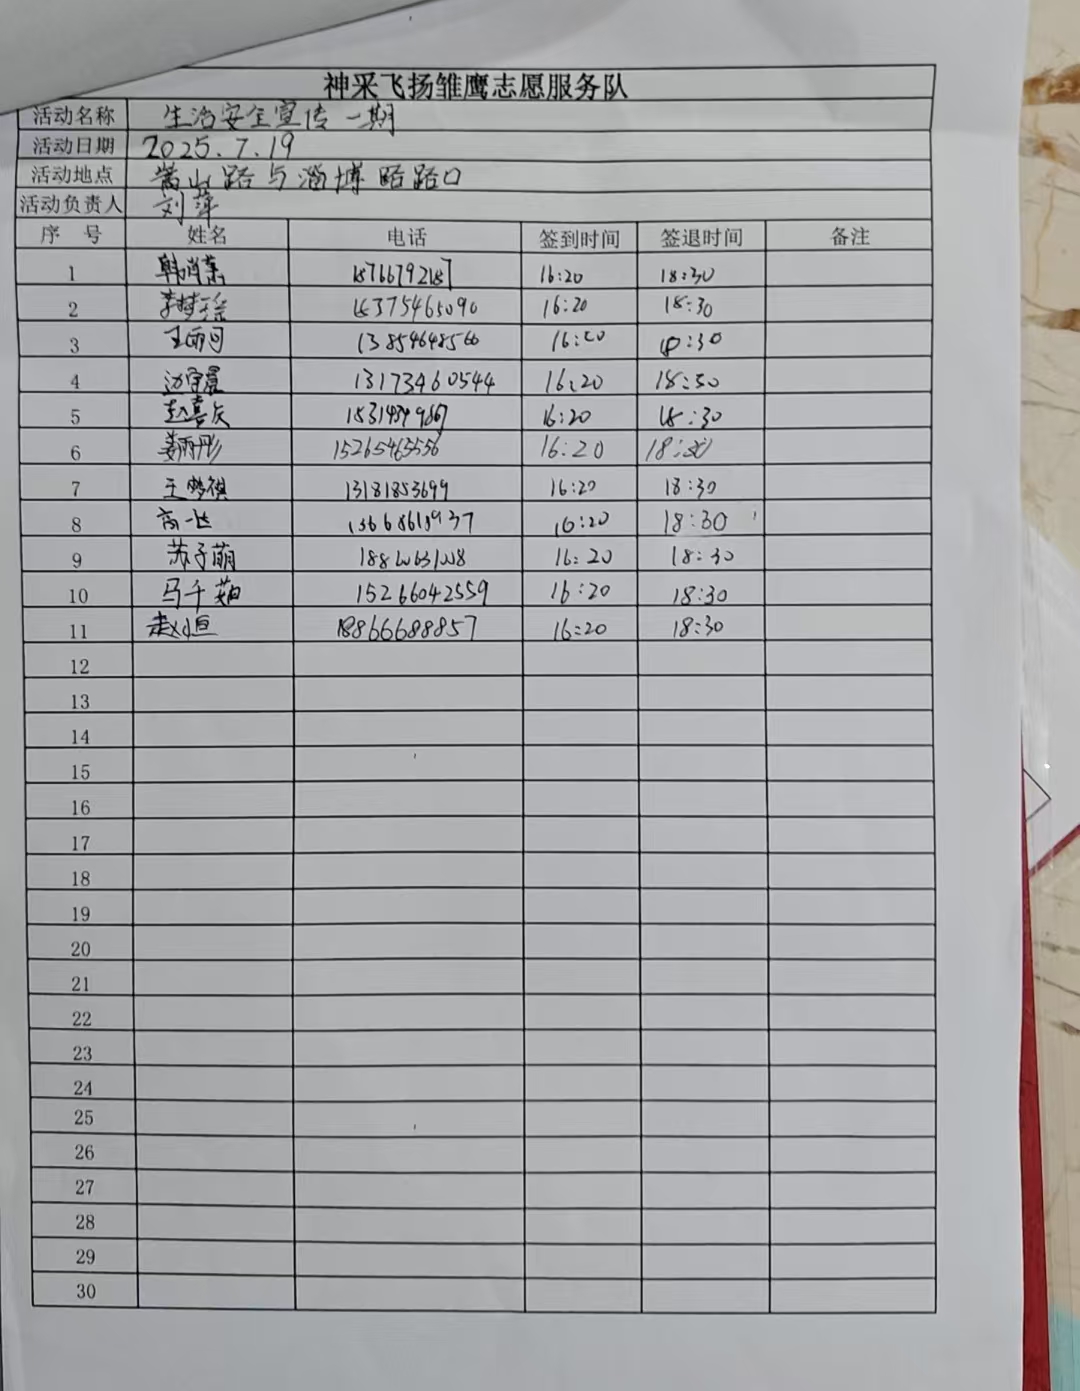 神采飞扬雏鹰志愿服务队
活动名称 生活安全宣传一期
活动日期 2025.7.19
活动地点 嵩山路与淄博路路口
活动负责人 刘萍
序 号 姓名 电话 签到时间 签退时间 备注
1 16:20 18:30
2 16:20 18:30
3 王雨可 13854648566 16:20 18:30
4 13173460544 16:20 18:30
5 赵嘉辰 16:20 18:30
6 姜雨彤 15265463556 16:20 18:30
7 王梦祺 13181853699 16:20 18:30
8 16:20 18:30
9 苏子萌 16:20 18:30
10 马千茹 15266042559 16:20 18:30
11 赵恒 18866688857 16:20 18:30
12
13
14
15
16
17
18
19
20
21
22
23
24
25
26
27
28
29
30